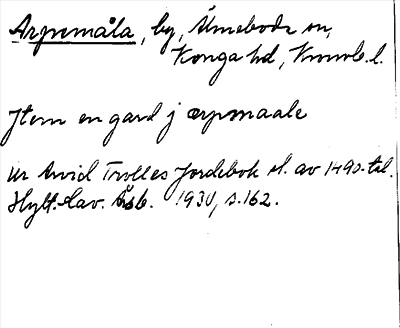 Arpemåla, by, Älmeboda sn,
Konga hd, Kronob. l.
Jtem en gard j arpmaale
Ur Arvid Trolles Jordebok sl. av 1490-tal.
Hylt. Cav. Årsb. 1930, s. 162.